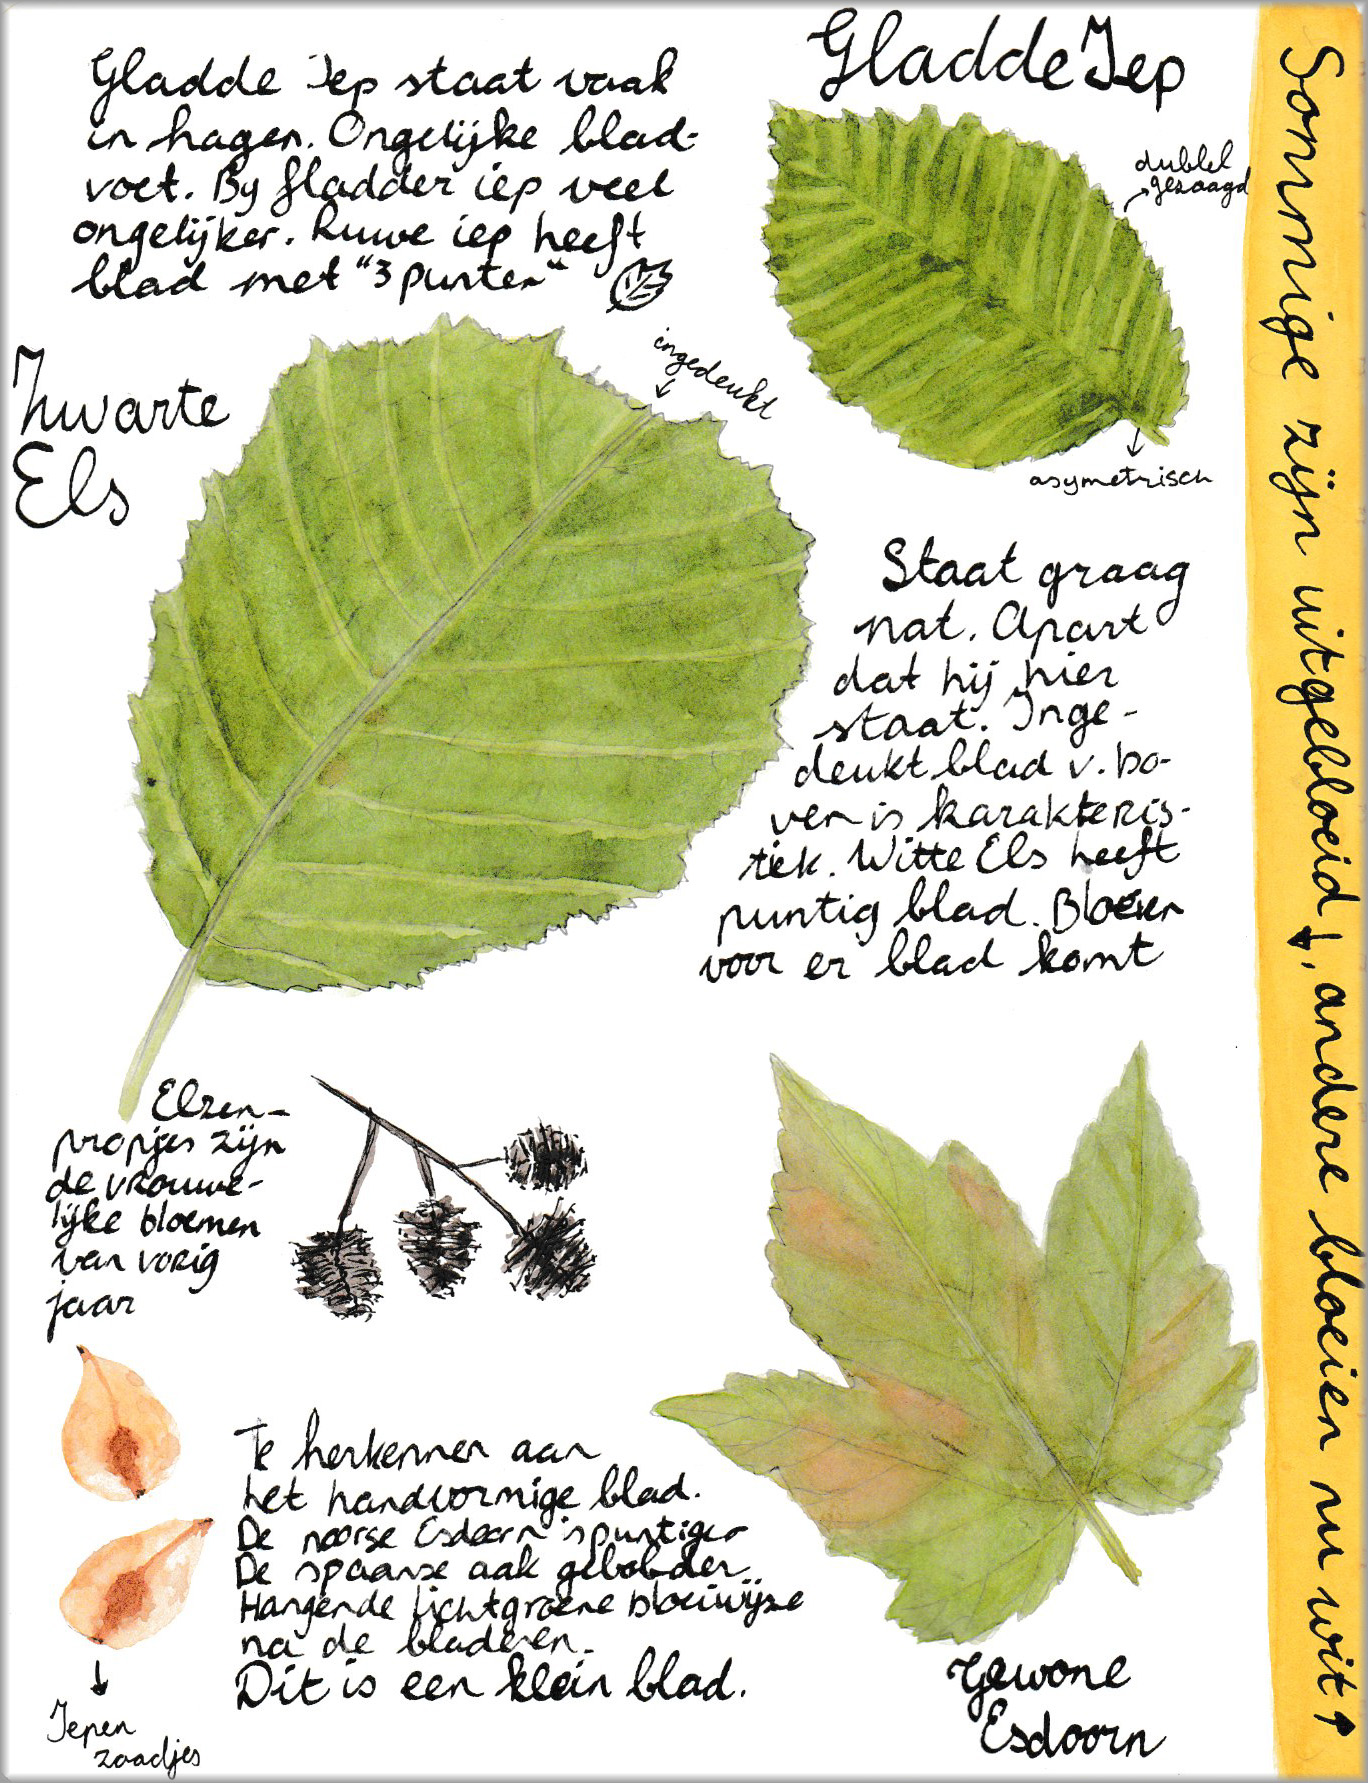 Gladde Iep
Gladde Iep staat vaak
in hagen. Ongelijke blad-
voet. By fladder iep veel
ongelijker. Ruwe iep heeft
blad met "3 punten"
dubbel
gezaagd
asymetrisch
Zwarte
Els
ingedeukt
Staat graag
nat. Apart
dat hij hier
staat. Inge-
deukt blad v. bo-
ven is karakteris-
tiek. Witte Els heeft
puntig blad. Bloeien
voor er blad komt
Elzen-
propjes zijn
de vrouwe-
lijke bloemen
van vorig
jaar
Te herkennen aan
het handvormige blad.
De noorse Esdoorn is puntiger
De spaanse aak gebobder
Hangende lichtgroene bloeiwijze
na de bladeren.
Dit is een klein blad.
Iepen
zaadjes
Gewone
Esdoorn
Sommige zijn uitgebloeid ↓, andere bloeien nu wit ↑